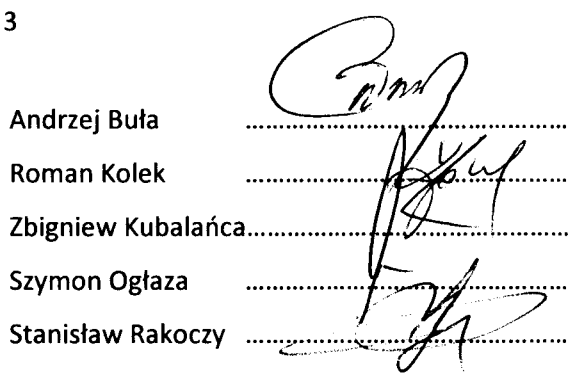 3
Andrzej Buła ........................................
Roman Kolek ........................................
Zbigniew Kubalańca........................................
Szymon Ogłaza ........................................
Stanisław Rakoczy ........................................